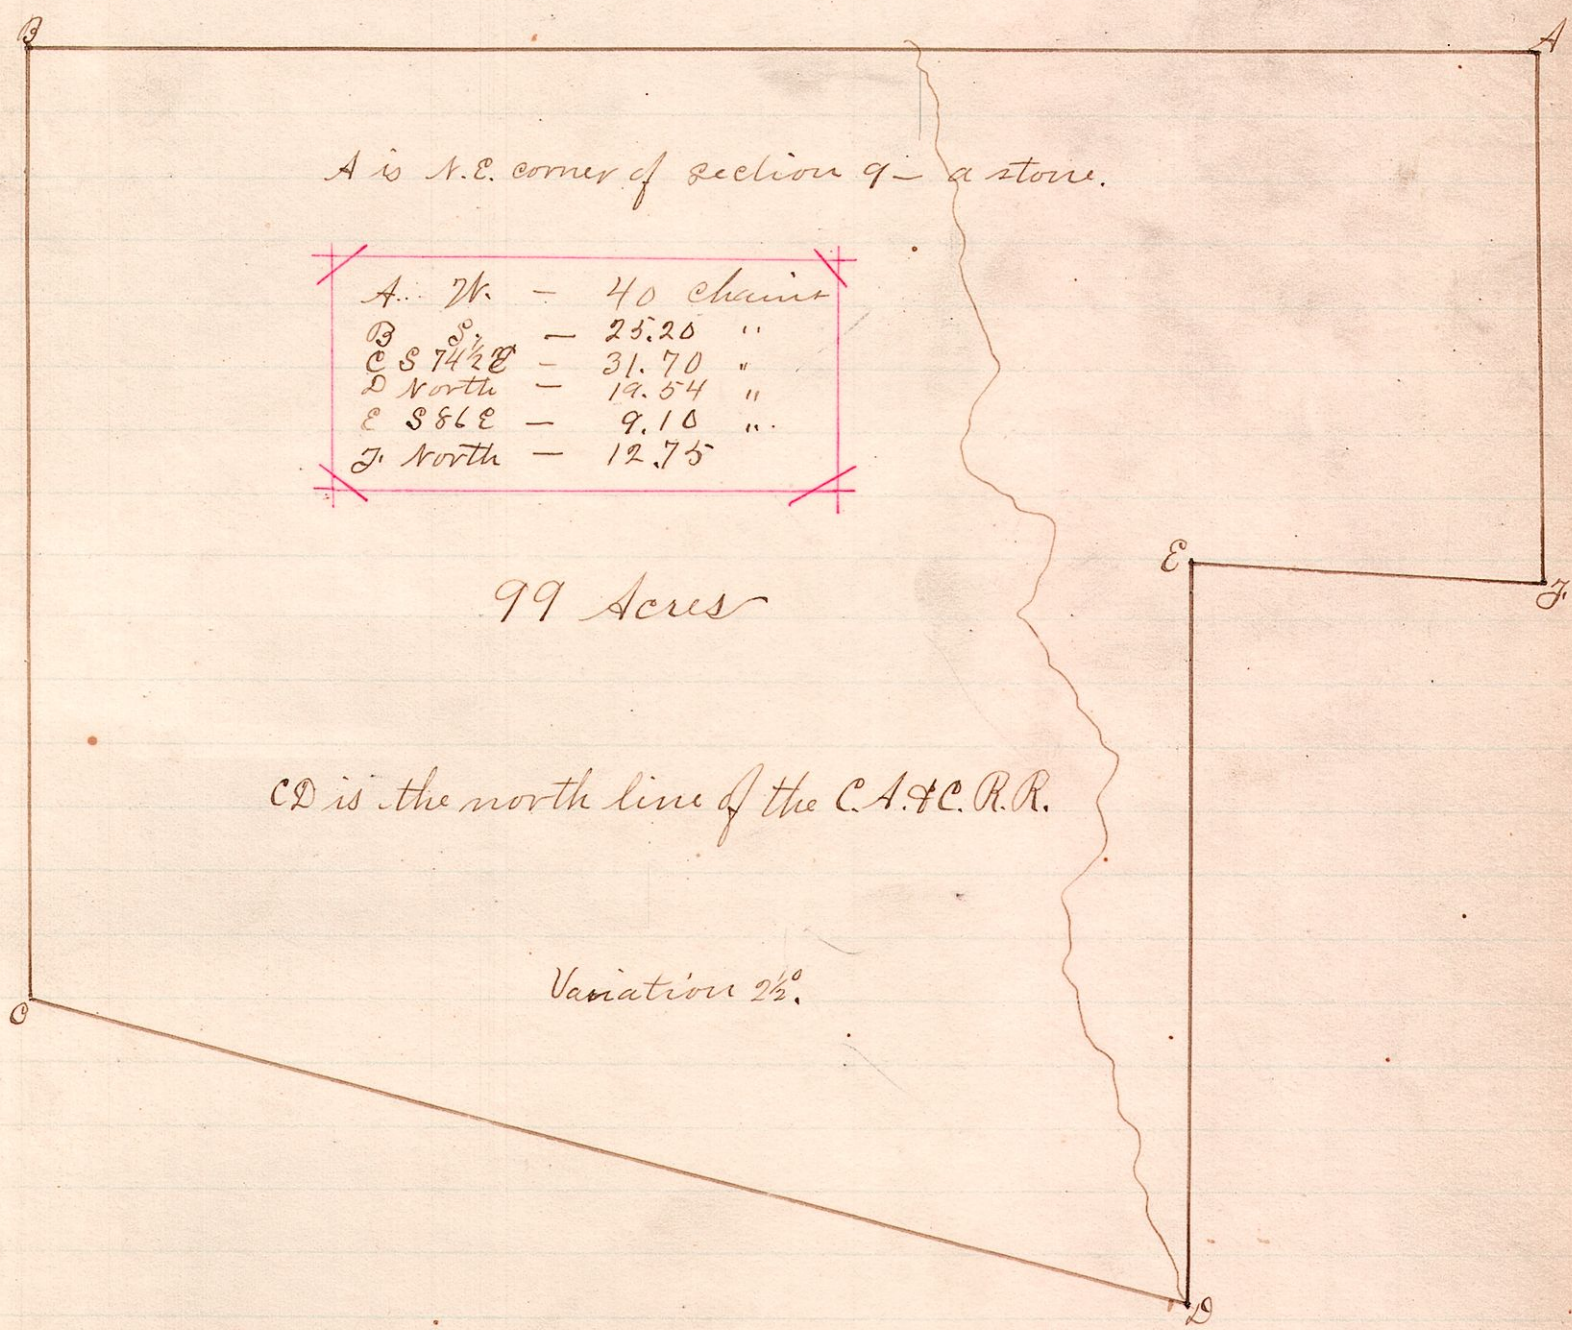 B
A
A is N.E. corner of section 9 — a stone.
A.. W. — 40 Chains
B S. — 25.20 "
C S 74½ E — 31.70 "
D North — 19.54 "
E S 86 E — 9.10 "
F. North — 12.75
E
F.
99 Acres
CD is the north line of the C. A. & C. R. R.
Variation 2½°.
C
D